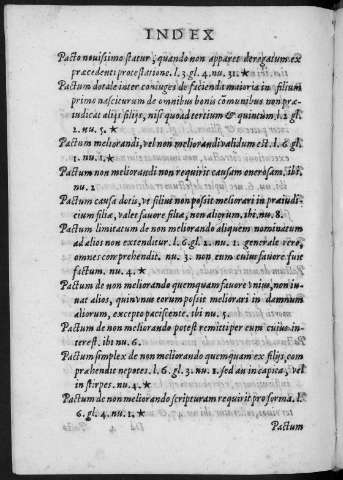 INDEX
Pacto nouissimo statur, quando non apparet derogatum ex
præcedenti protestatione. l. 3. gl. 4. nu. 31. ★
Pactum dotale inter coniuges de facienda maioria in filium
primo nasciturum de omnibus bonis comunibus non præ-
iudicat alijs filijs, nisi quoad tertium & quintum. l. 2 gl.
2. nu. 5. ★
Pactum meliorandi, vel non meliorandi validum est. l. 6. gl
1. nu. 1. ★
Pactum non meliorandi non requirit causam onerosam. ibi.
nu. 2
Pactum causa dotis, vt filius non possit meliorari in præiudi-
cium filiæ, valet fauore filiæ, non aliorum, ibi. nu. 8.
Pactum limitatum de non meliorando aliquem nominatum
ad alios non extenditur. l. 6. gl. 2. nu. 1. generale vero,
omnes comprehendit. nu. 3. non eum cuius fauore fuit
factum. nu. 4. ★
Pactum de non meliorando quemquam fauore vnius, non in-
uat alios, quinvnus eorum possit meliorari in damnum
aliorum, excepto paciscente. ibi nu. 5.
Pactum de non meliorando potest remitti per eum cuius in-
terest. ibi nu. 6.
Pactum simplex de non meliorando quemquam ex filijs, com
præhendit nepotes. l. 6. gl. 3. nu. 1. sed an in capita, vel
in stirpes. nu. 4. ★
Pactum de non meliorando scripturam requirit pro forma. l.
6. gl. 4. nu. 1. ★
Pactum